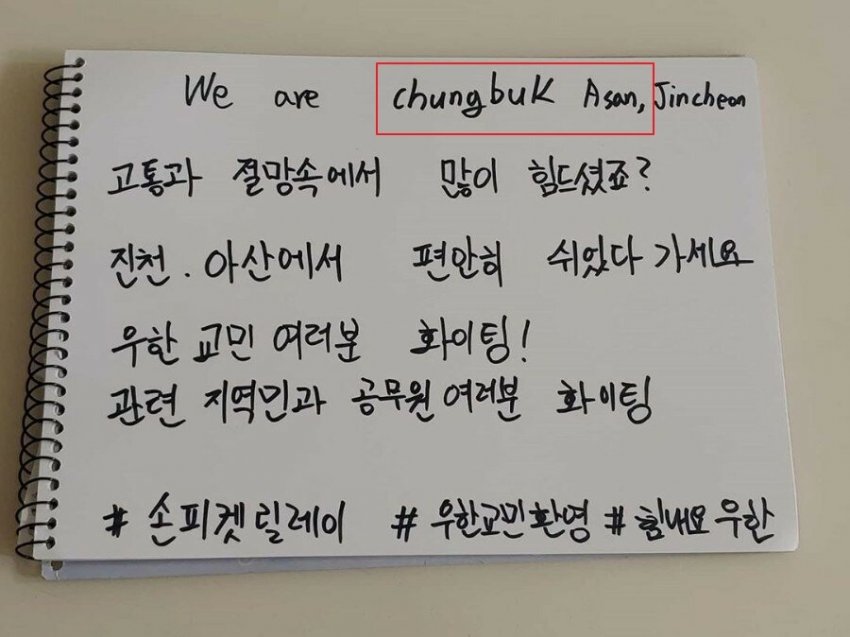 We are chungbuk Asan, Jincheon
고통과 절망속에서 많이 힘드셨죠?
진천. 아산에서 편안히 쉬었다 가세요
우한 교민 여러분 화이팅!
관련 지역민과 공무원 여러분 화이팅
# 손피켓릴레이 # 우한교민환영 # 힘내요 우한